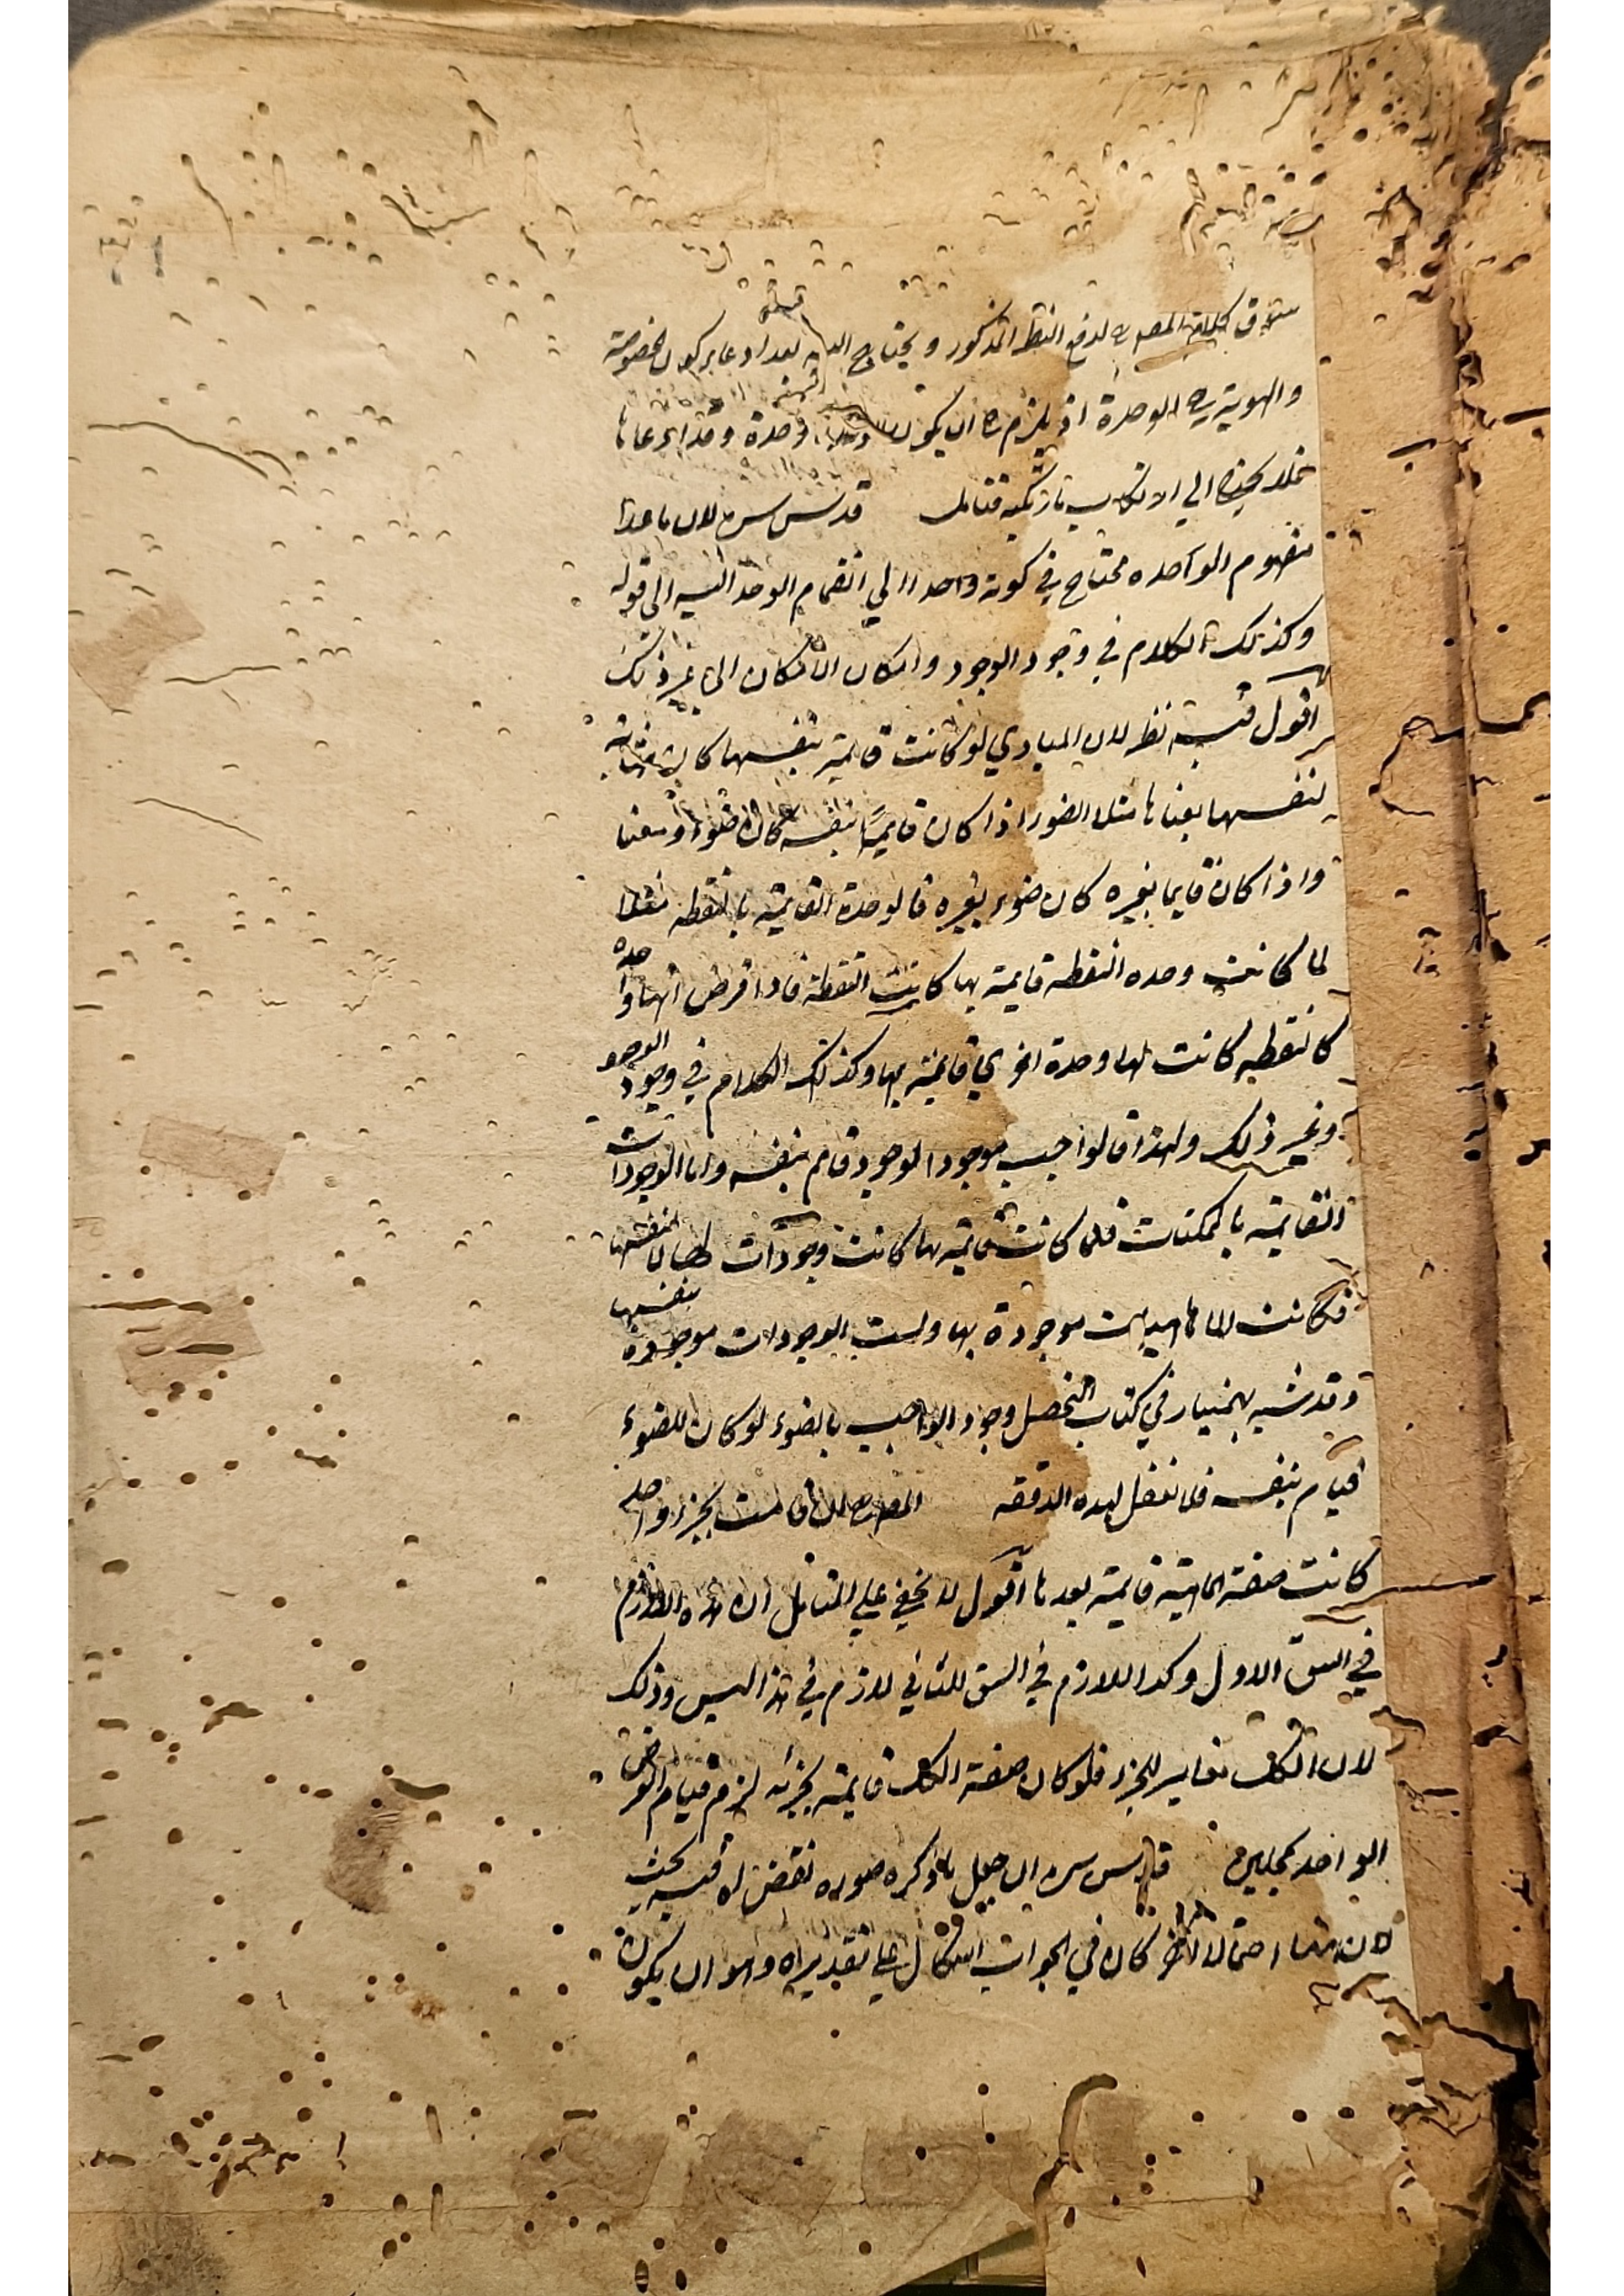 كلام المص ره لدفع النظر المذكور ويحتاج اليه
والهوية ره الوحدة اذ يلزم ره ان يكون وحدة وقد ادعاها
فلا يحتاج الى ارتكاب فتامل قدس سره لان ما عدا
مفهوم الواحده محتاج في كونه واحدا الي انضمام الوحدة اليه الى قوله
وكذلك الكلام في وجود الوجود وامكان الامكان الى غير ذلك
اقول فيه نظر لان المبادي لو كانت قايمة بنفسها كانت
لنفسها بمعناها مثلا الضوء اذا كان قايما بنفسه كان ضوءا
واذا كان قايما بغيره كان ضوء بغيره فالوحدة القايمة بالنقطه مثلا
لما كانت وحده النقطه قايمة بها كانت النقطة فاذا فرض انها واحده
كالنقطه كانت لها وحدة اخري قايمة بها وكذلك الكلام في وجود الوجود
وغير ذلك ولهذا قالوا واجب موجود الوجود قايم بنفسه واما الوجودات
القايمة بالممكنات فلما كانت قايمة بها كانت وجودات لها لا لنفسها
فكانت الماهيات موجودة بها وليست الوجودات موجودة بنفسها
وقد شبه بهمنيار في كتاب التحصيل وجود الواجب بالضوء لو كان للضوء
قيام بنفسه فلا تغفل لهذه الدقيقه المص ره لان قامت بجزء واحد
كانت صفة الماهية قايمة بعد ها اقول لا يخفي علي المتامل ان هذه اللازم
في الشق الاول وكذا اللازم في الشق الثاني لازم في هذا الشق وذلك
لان الكل مغاير للجزء فلو كان صفة الكل قايمة بجزئه لزم قيام العرض
الواحد بمحلين قدس سره ان جعل ما ذكره صوره نقض له فيه بحث
لان هنا احتمالا اخر كان في الجواب اشكال علي تقديره وهو ان يكون